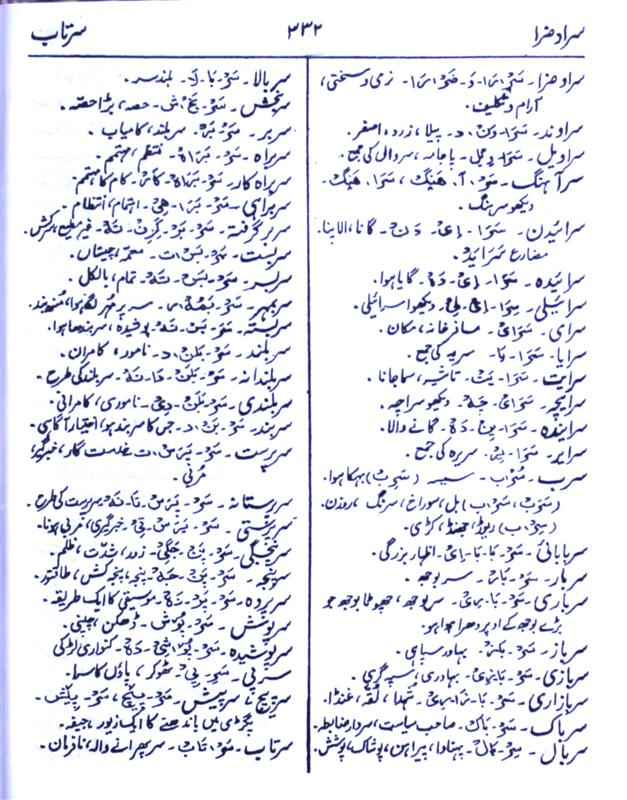 سراوضرا ۲۳۲ سرتاب
سراوضرا - سَرْ را - وَ - ضَرْ را - نرمی و سختی،
آرام و تکلیف۔
سراوند - سَرَا - وَنْ، د - پیلا، زرد، اصفر۔
سراویل - سَرَا - وِیل - پاجامہ، سروال کی جمع۔
سرآہنگ - سَرْ - آ - ھَنْگ، سَرَا - ھَنْگ -
دیکھو سرہنگ۔
سرائیدن - سَرَا - اِیْ - دَنْ - گانا، الاپنا۔
مضارع سَرَایَد۔
سرائیدہ - سَرَا - اِیْ - دَہْ - گایا ہوا۔
سرائیلی - سِرَا - اِیْ - لِیْ - دیکھو اسرائیلی۔
سرای - سَرَایْ - مسافر خانہ، مکان۔
سرایا - سَرَا - یَا - سریہ کی جمع۔
سرایت - سَرَا - یَتْ - تاثیر، سما جانا۔
سرایچہ - سَرَایْ - چَہْ - دیکھو سراچہ۔
سرایندہ - سَرَا - یِنْ - دَہْ - گانے والا۔
سرایر - سَرَا - یِرْ - سریرہ کی جمع۔
سرب - سُرْب - سیسہ (سَرِب) بہتا ہوا۔
(سَرَبْ، سَرْب) بل، سوراخ، سرنگ، روزن۔
(سِرْب) ریوڑ، جھنڈ، ٹکڑی۔
سربابائی - سَرْ - بَا - بَا - اِیْ - اظہار بزرگی۔
سربار - سَرْ - بَار - سر بوجھ۔
سرباری - سَرْ - بَا - رِیْ - سر بوجھ، چھوٹا بوجھ جو
بڑے بوجھ کے اوپر دھرا ہوا ہو۔
سرباز - سَرْ - بَازْ - بہادر سپاہی۔
سربازی - سَرْ - بَا - زِیْ - بہادری، سپہ گری۔
سربازاری - سَرْ - بَا - زَا - رِیْ - شہدا، لقہ، غنڈا۔
سرباک - سَرْ - بَاک - صاحب سیاست، سردار ضابطہ۔
سربال - سِرْ - بَال - پہناوا، پیراہن، پوشاک، پوشش۔
سربالا - سَرْ - بَا - لَا - بلند سر۔
سربخش - سَرْ - بَخْ، ش - حصہ، بڑا حصہ۔
سربر - سَرْ - بَرْ - سربلند، کامیاب۔
سربراہ - سَرْ - بَرَاہ - منتظم، مہتمم۔
سربراہ کار - سَرْ - بَرَاہ - کَار - کام کا مہتمم۔
سربراہی - سَرْ - بَرَا - ھِیْ - اہتمام، انتظام۔
سربر گرفتہ - سَرْ - بَرْ - گِرِفْ - تَہْ - غیر مطیع، سرکش۔
سربست - سَرْ - بَسْ، ت - معمہ، چیستاں۔
سربسر - سَرْ - بَسَرْ - تمام، بالکل۔
سربمہر - سَرْ - بَمُہْ، ر - سر پر مہر لگا ہوا، منہ بند۔
سربستہ - سَرْ - بَسْ - تَہْ - پوشیدہ، سر بندھا ہوا۔
سربلند - سَرْ - بَلَنْ، د - نامور، کامران۔
سربلندانہ - سَرْ - بَلَنْ - دَا - نَہ - سربلند کی طرح۔
سربلندی - سَرْ - بَلَنْ - دِیْ - ناموری، کامرانی۔
سربند - سَرْ - بَنْ، د - جس کا سر بند ہو،
سرپرست - سَرْ - پَرَسْ، ت - خدمت گار، خبرگیر،
مربّی۔
سرپرستانہ - سَرْ - پَرَسْ - تَا - نَہْ - سرپرست کی طرح۔
سرپرستی - سَرْ - پَرَسْ - تِیْ - خبرگیری، مربی ہونا۔
سرپنجگی - سَرْ - پَنْ - جَگِیْ - زور، شدت، ظلم۔
سرپنجہ - سَرْ - پَنْ - جَہْ - پنجہ، پنجہ کش، طاقتور۔
سرپردہ - سَرْ - پَرْ - دَہْ - موسیقی کا ایک طریقہ۔
سرپوش - سَرْ - پُوش - ڈھکن، چپنی۔
سرپوشیدہ - سَرْ - پُو - شِیْ - دَہْ - کنواری لڑکی
سرپی - سَرْ - پِیْ - ٹھوکر، پاؤں کا سرا۔
سرپیچ، سرپیش - سَرْ - پِیچ، سَرْ - پِیش -
پگڑی میں باندھنے کا ایک زیور، جیغہ۔
سرتاب - سَرْ - تَاب - سر پھرانے والا، نافرمان۔